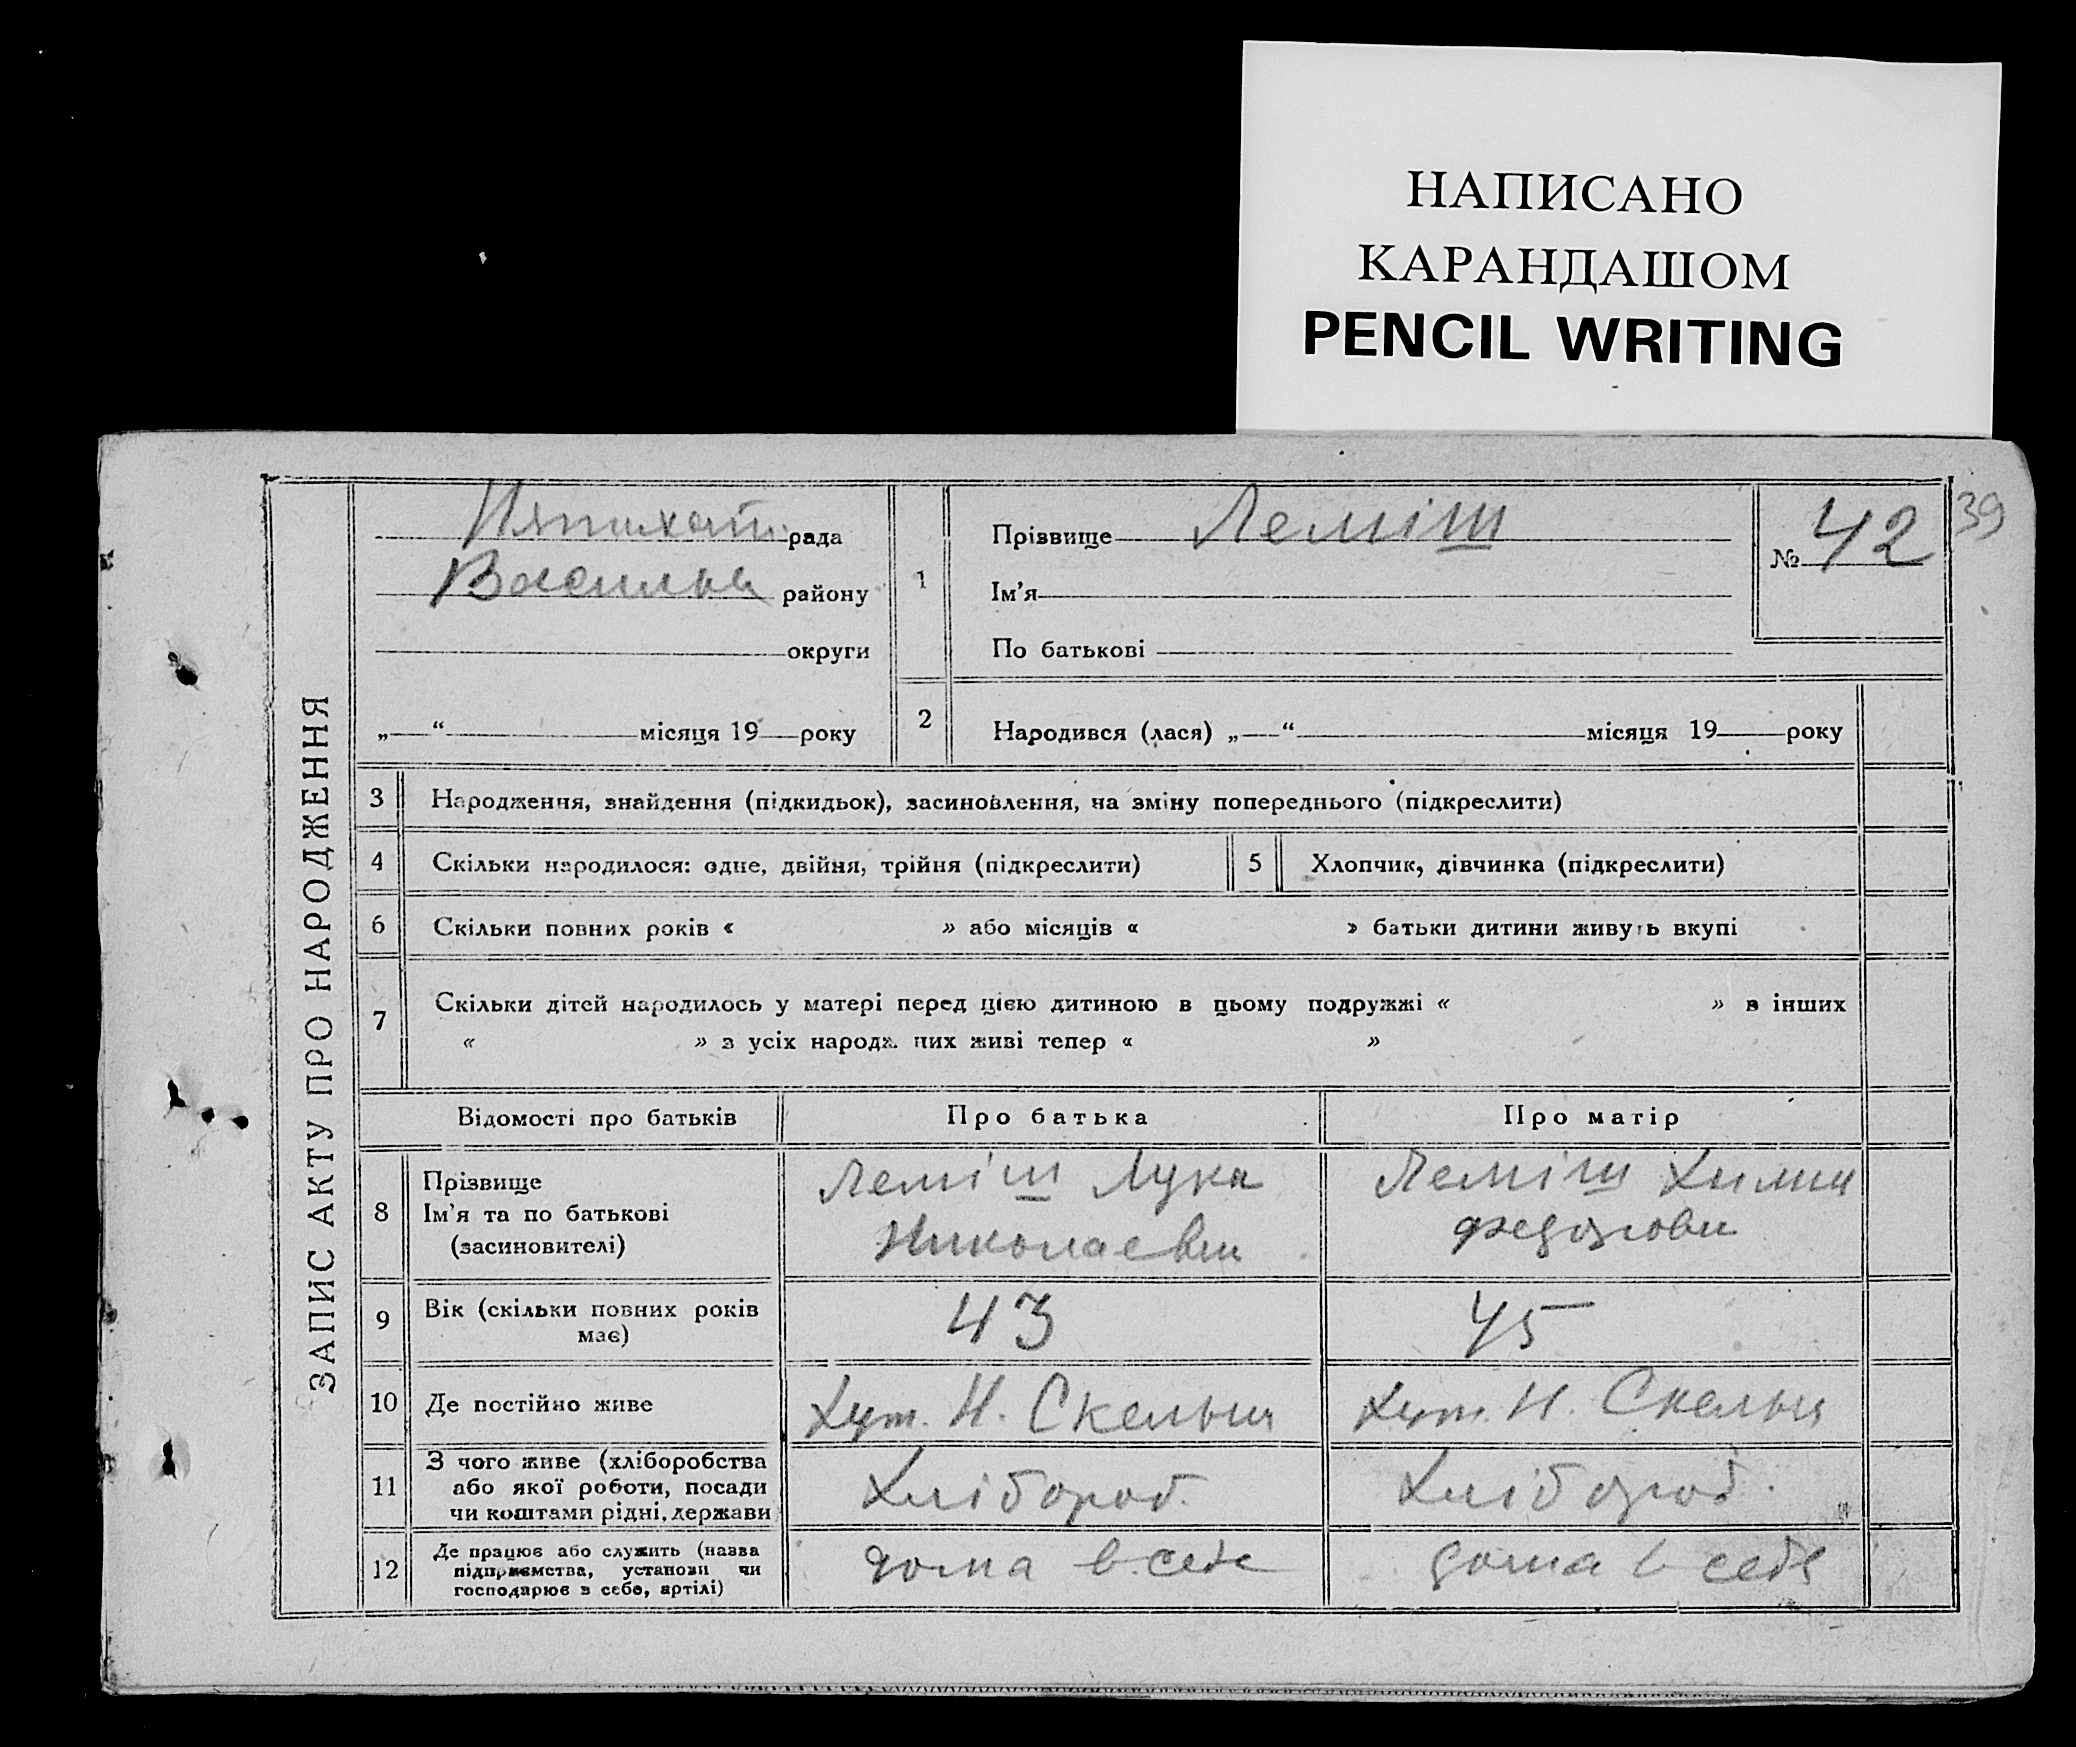 НАПИСАНО
КАРАНДАШОМ
PENCIL WRITING
39
ЗАПИС АКТУ ПРО НАРОДЖЕННЯ
Пятихат. рада
Васильк района
округи
„ “ місяця 19 року
1
Прізвище Леміш
Ім’я
По батькові
№ 42
2
Народився (лася) „ “ місяця 19 року
3 Народження, знайдення (підкидьок), засиновлення, на зміну попереднього (підкреслити)
4 Скільки народилося: одне, двійня, трійня (підкреслити) 5 Хлопчик, дівчинка (підкреслити)
6 Скільки повних років « » або місяців « » батьки дитини живуть вкупі
7 Скільки дітей народилось у матері перед цією дитиною в цьому подружжі « » в інших
« » з усіх народж них живі тепер « »
Відомості про батьків Про батька Про матір
8 Прізвище
Ім’я та по батькові
(засиновителі)
Леміш Лука
Николаеви
Леміш Химия
Федорови
9 Вік (скільки повних років
має)
43 45
10 Де постійно живе Хут. Н. Скельки Хут. Н. Скельки
11 З чого живе (хліборобства
або якої роботи, посади
чи коштами рідні, держави
Хлібороб. Хлібороб.
12 Де працює або служить (назва
підприємства, установи чи
господарює в себе, артілі)
дома в себе дома в себе